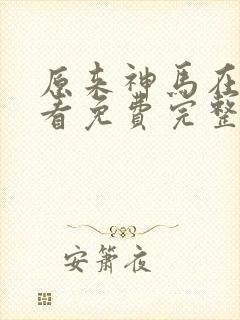 原来神马在
看免费完整
安箫夜